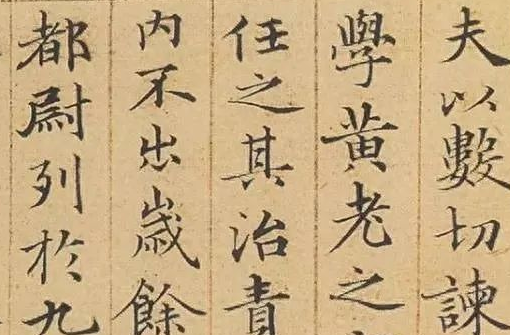 夫以數切諫
學黄老之
任之其治責
内不出歲餘
都尉列於九